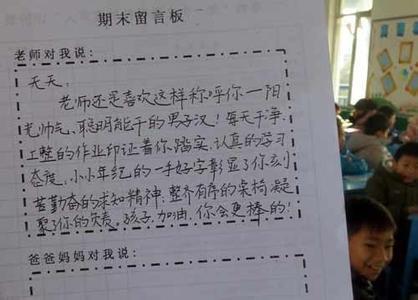 期末留言板
老师对我说:
天天:
老师还是喜欢这样称呼你一阳
光帅气、聪明能干的男子汉!每天干净、
工整的作业印证着你踏实、认真的学习
态度,小小年纪的一手好字彰显了你刻
苦勤奋的求知精神,整齐有序的桌椅凝
聚了你的负责。孩子,加油,你会更棒的!
爸爸妈妈对我说: